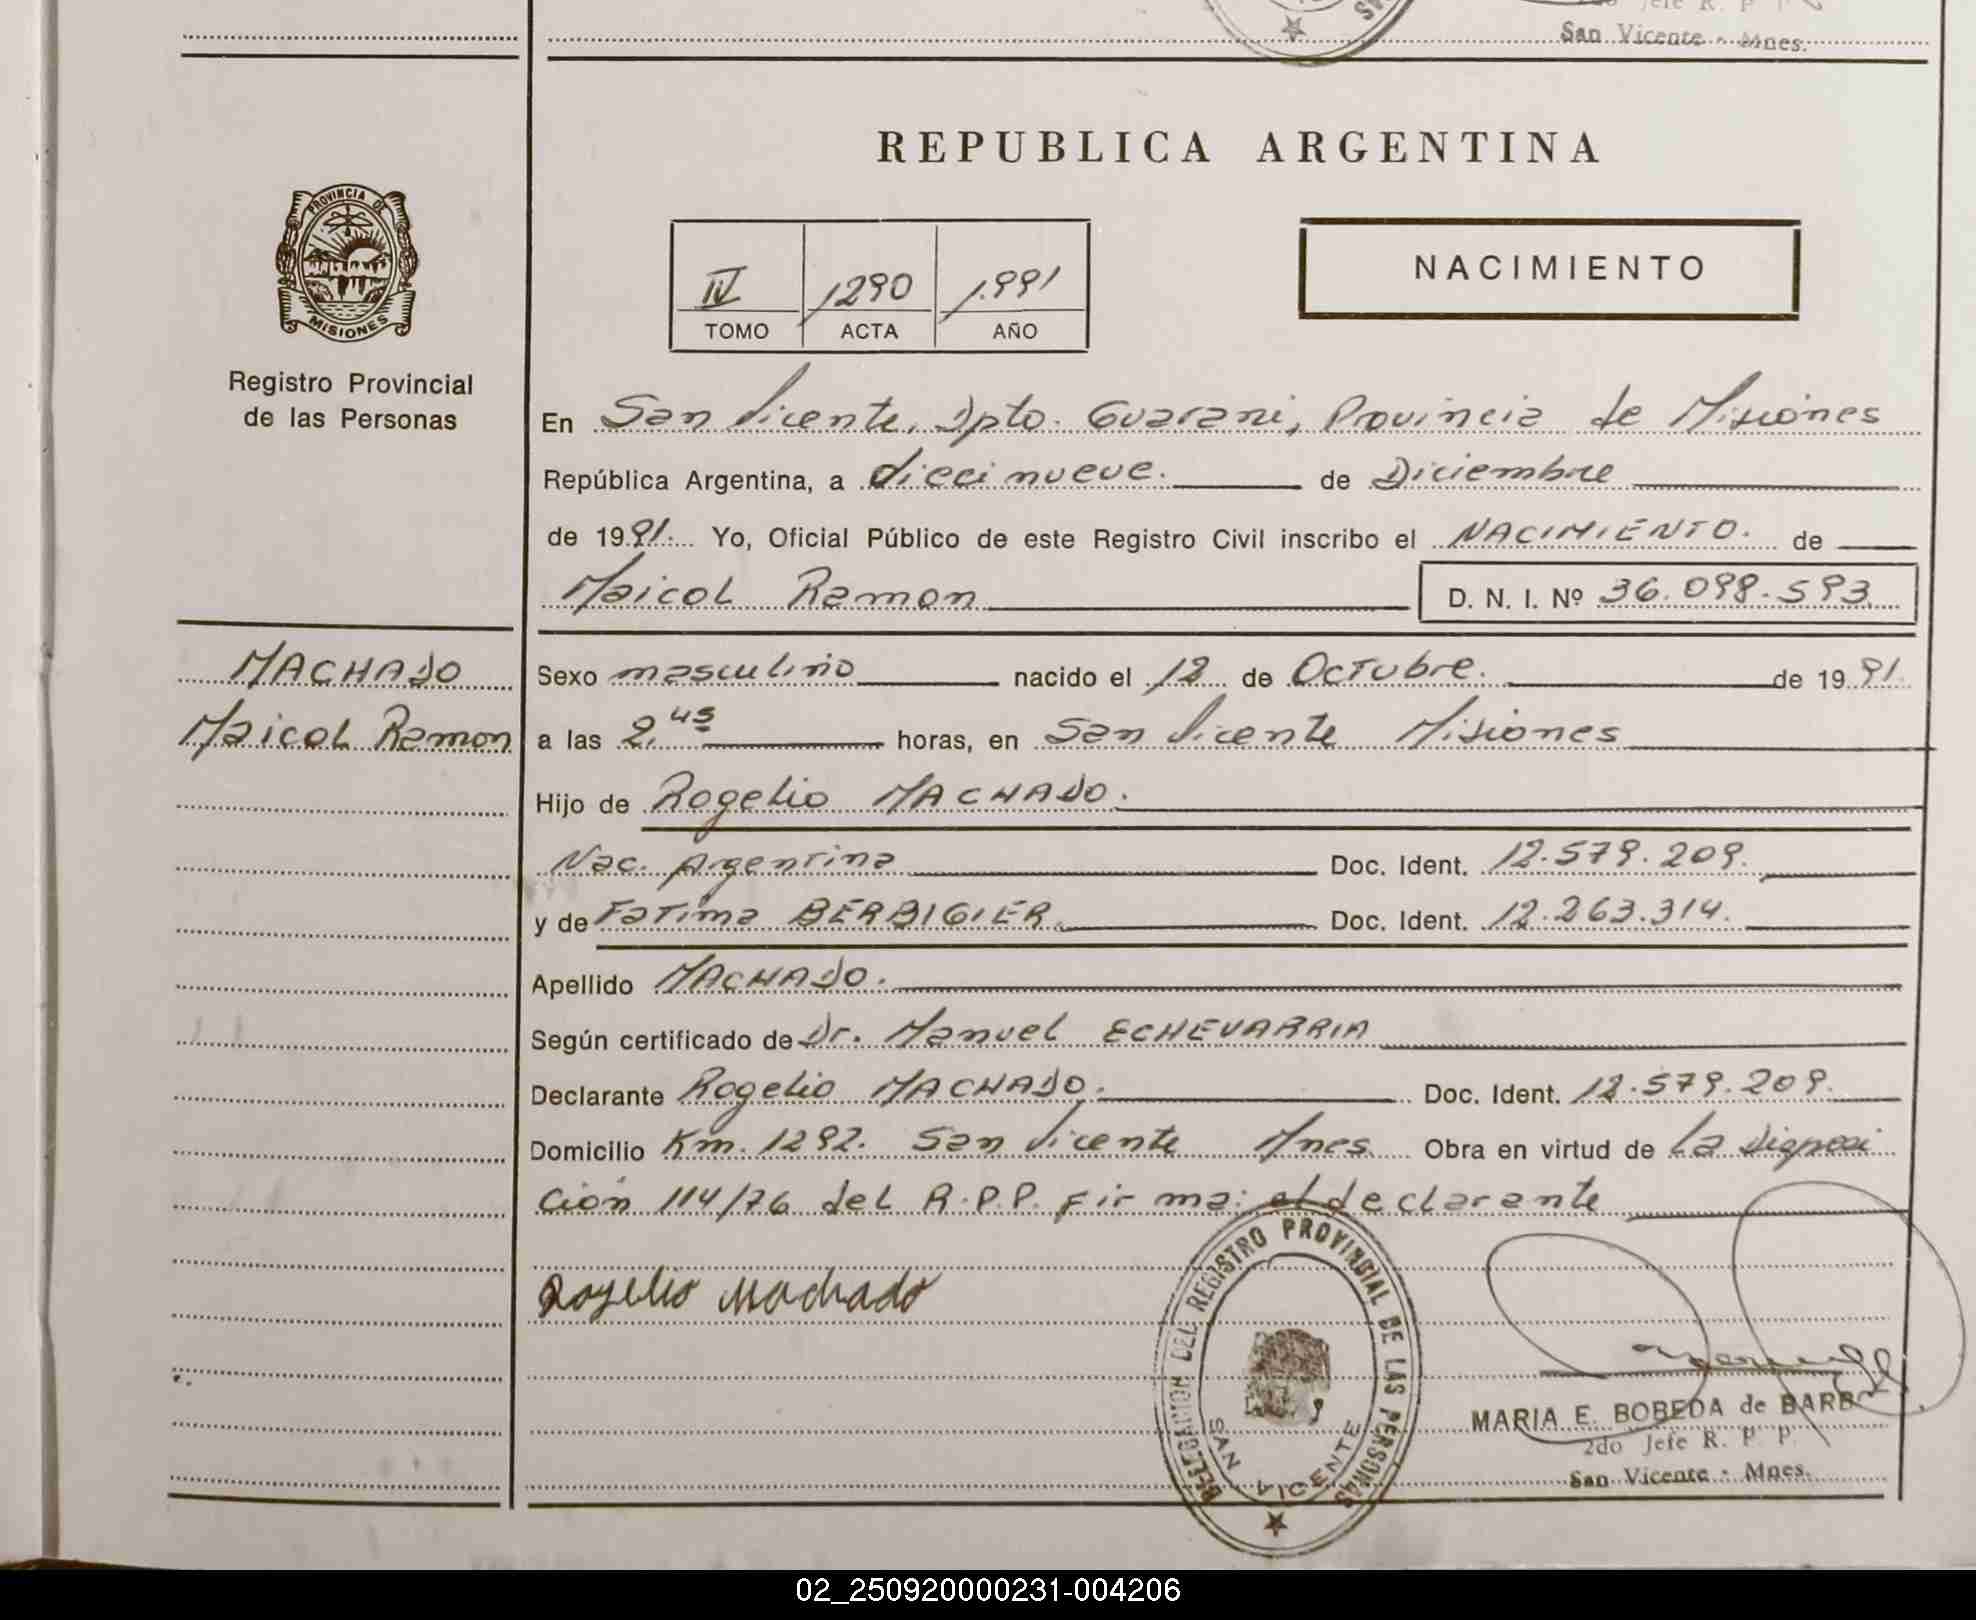 2do Jefe R. P. P.
San Vicente - Mnes.
REPUBLICA ARGENTINA
PROVINCIA DE
MISIONES
Registro Provincial
de las Personas
IV 1290 1.991
TOMO ACTA AÑO
NACIMIENTO
En San Vicente, Dpto. Guarani, Provincia de Misiones
República Argentina, a diecinueve. de Diciembre
de 1991. Yo, Oficial Público de este Registro Civil inscribo el NACIMIENTO. de
Maicol Ramon D. N. I. Nº 36.098.593
MACHADO
Maicol Ramon
Sexo masculino nacido el 12 de Octubre. de 1991.
a las 2.45 horas, en San Vicente Misiones
Hijo de Rogelio MACHADO.
Nac. Argentina Doc. Ident. 12.579.209.
y de Fatima BERBIGIER. Doc. Ident. 12.263.314.
Apellido MACHADO.
Según certificado de Dr. Manuel ECHEVARRIA
Declarante Rogelio MACHADO. Doc. Ident. 12.579.209.
Domicilio Km. 1292. San Vicente Mnes. Obra en virtud de la
ción 114/76 del R.P.P. Firma: el declarante
Rogelio Machado
DELEGACION DEL REGISTRO PROVINCIAL DE LAS PERSONAS
SAN VICENTE
MARIA E. BOBEDA de BARB
2do Jefe R. P. P.
San Vicente - Mnes.
02_250920000231-004206